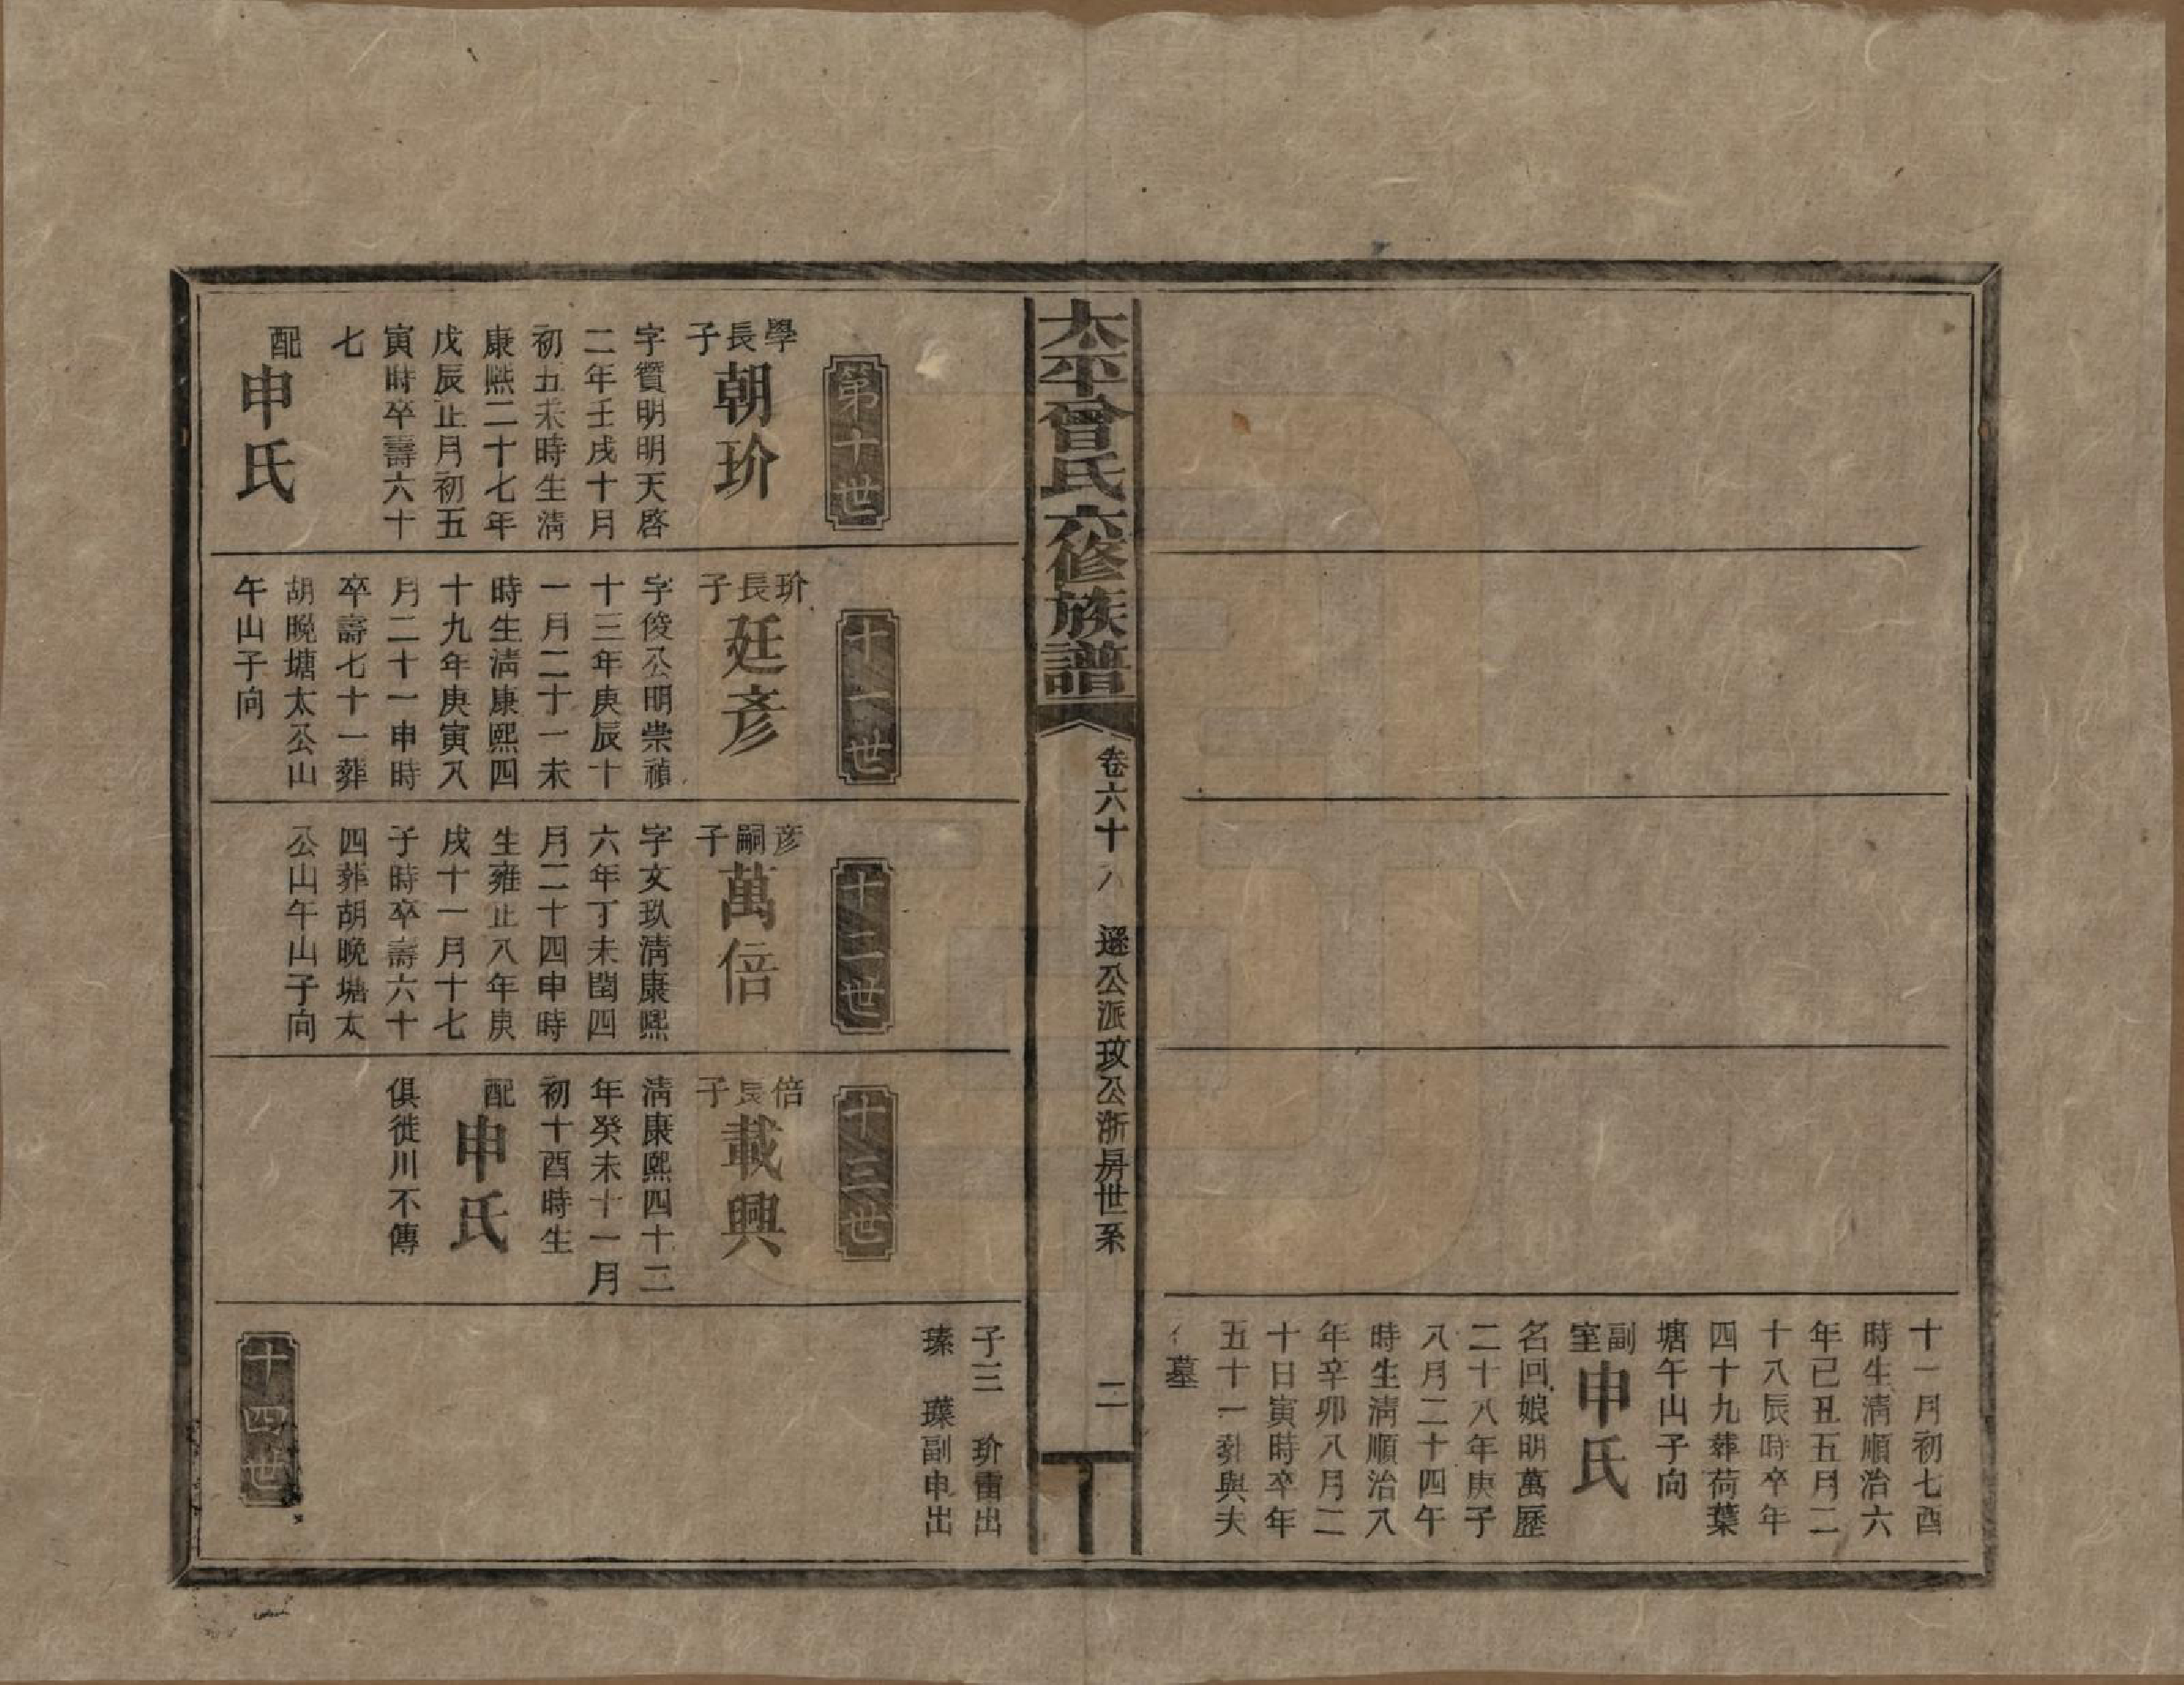 十一月初七酉
時生清順治六
年己丑五月二
十八辰時卒年
四十九葬荷葉
塘午山子向
副室申氏
名回娘明萬歷
二十八年庚子
八月二十四午
時生清順治八
年辛卯八月二
十日寅時卒年
五十一葬與夫
墓
太平曾氏六修族譜
卷六十八 遜公派玫公浙房世系
二
子三 玠雷出
瑧 瓅副申出
第十世
學長子朝玠
字贊明明天啓
二年壬戌十月
初五未時生清
康熙二十七年
戊辰正月初五
寅時卒壽六十
七
配申氏
十一世
玠長子廷彥
字俊公明崇禎
十三年庚辰十
一月二十一未
時生清康熙四
十九年庚寅八
月二十一申時
卒壽七十一葬
胡晚塘太公山
午山子向
十二世
彥嗣子萬倍
字文玖清康熙
六年丁未閏四
月二十四申時
生雍正八年庚
戌十一月十七
子時卒壽六十
四葬胡晚塘太
公山午山子向
十三世
倍長子載興
清康熙四十二
年癸未十一月
初十酉時生
配申氏
俱徙川不傳
十四世